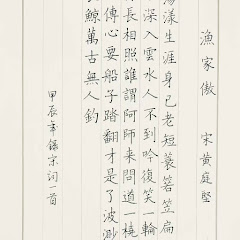 漁家傲 宋黃庭堅
蕩漾生涯身已老短蓑箬笠扁
深入雲水人不到吟復笑一輪
長相照誰謂阿師來問道一橈
傳心要船子踏翻才是了波渺
鯨萬古無人釣
甲辰年錄宋詞一首